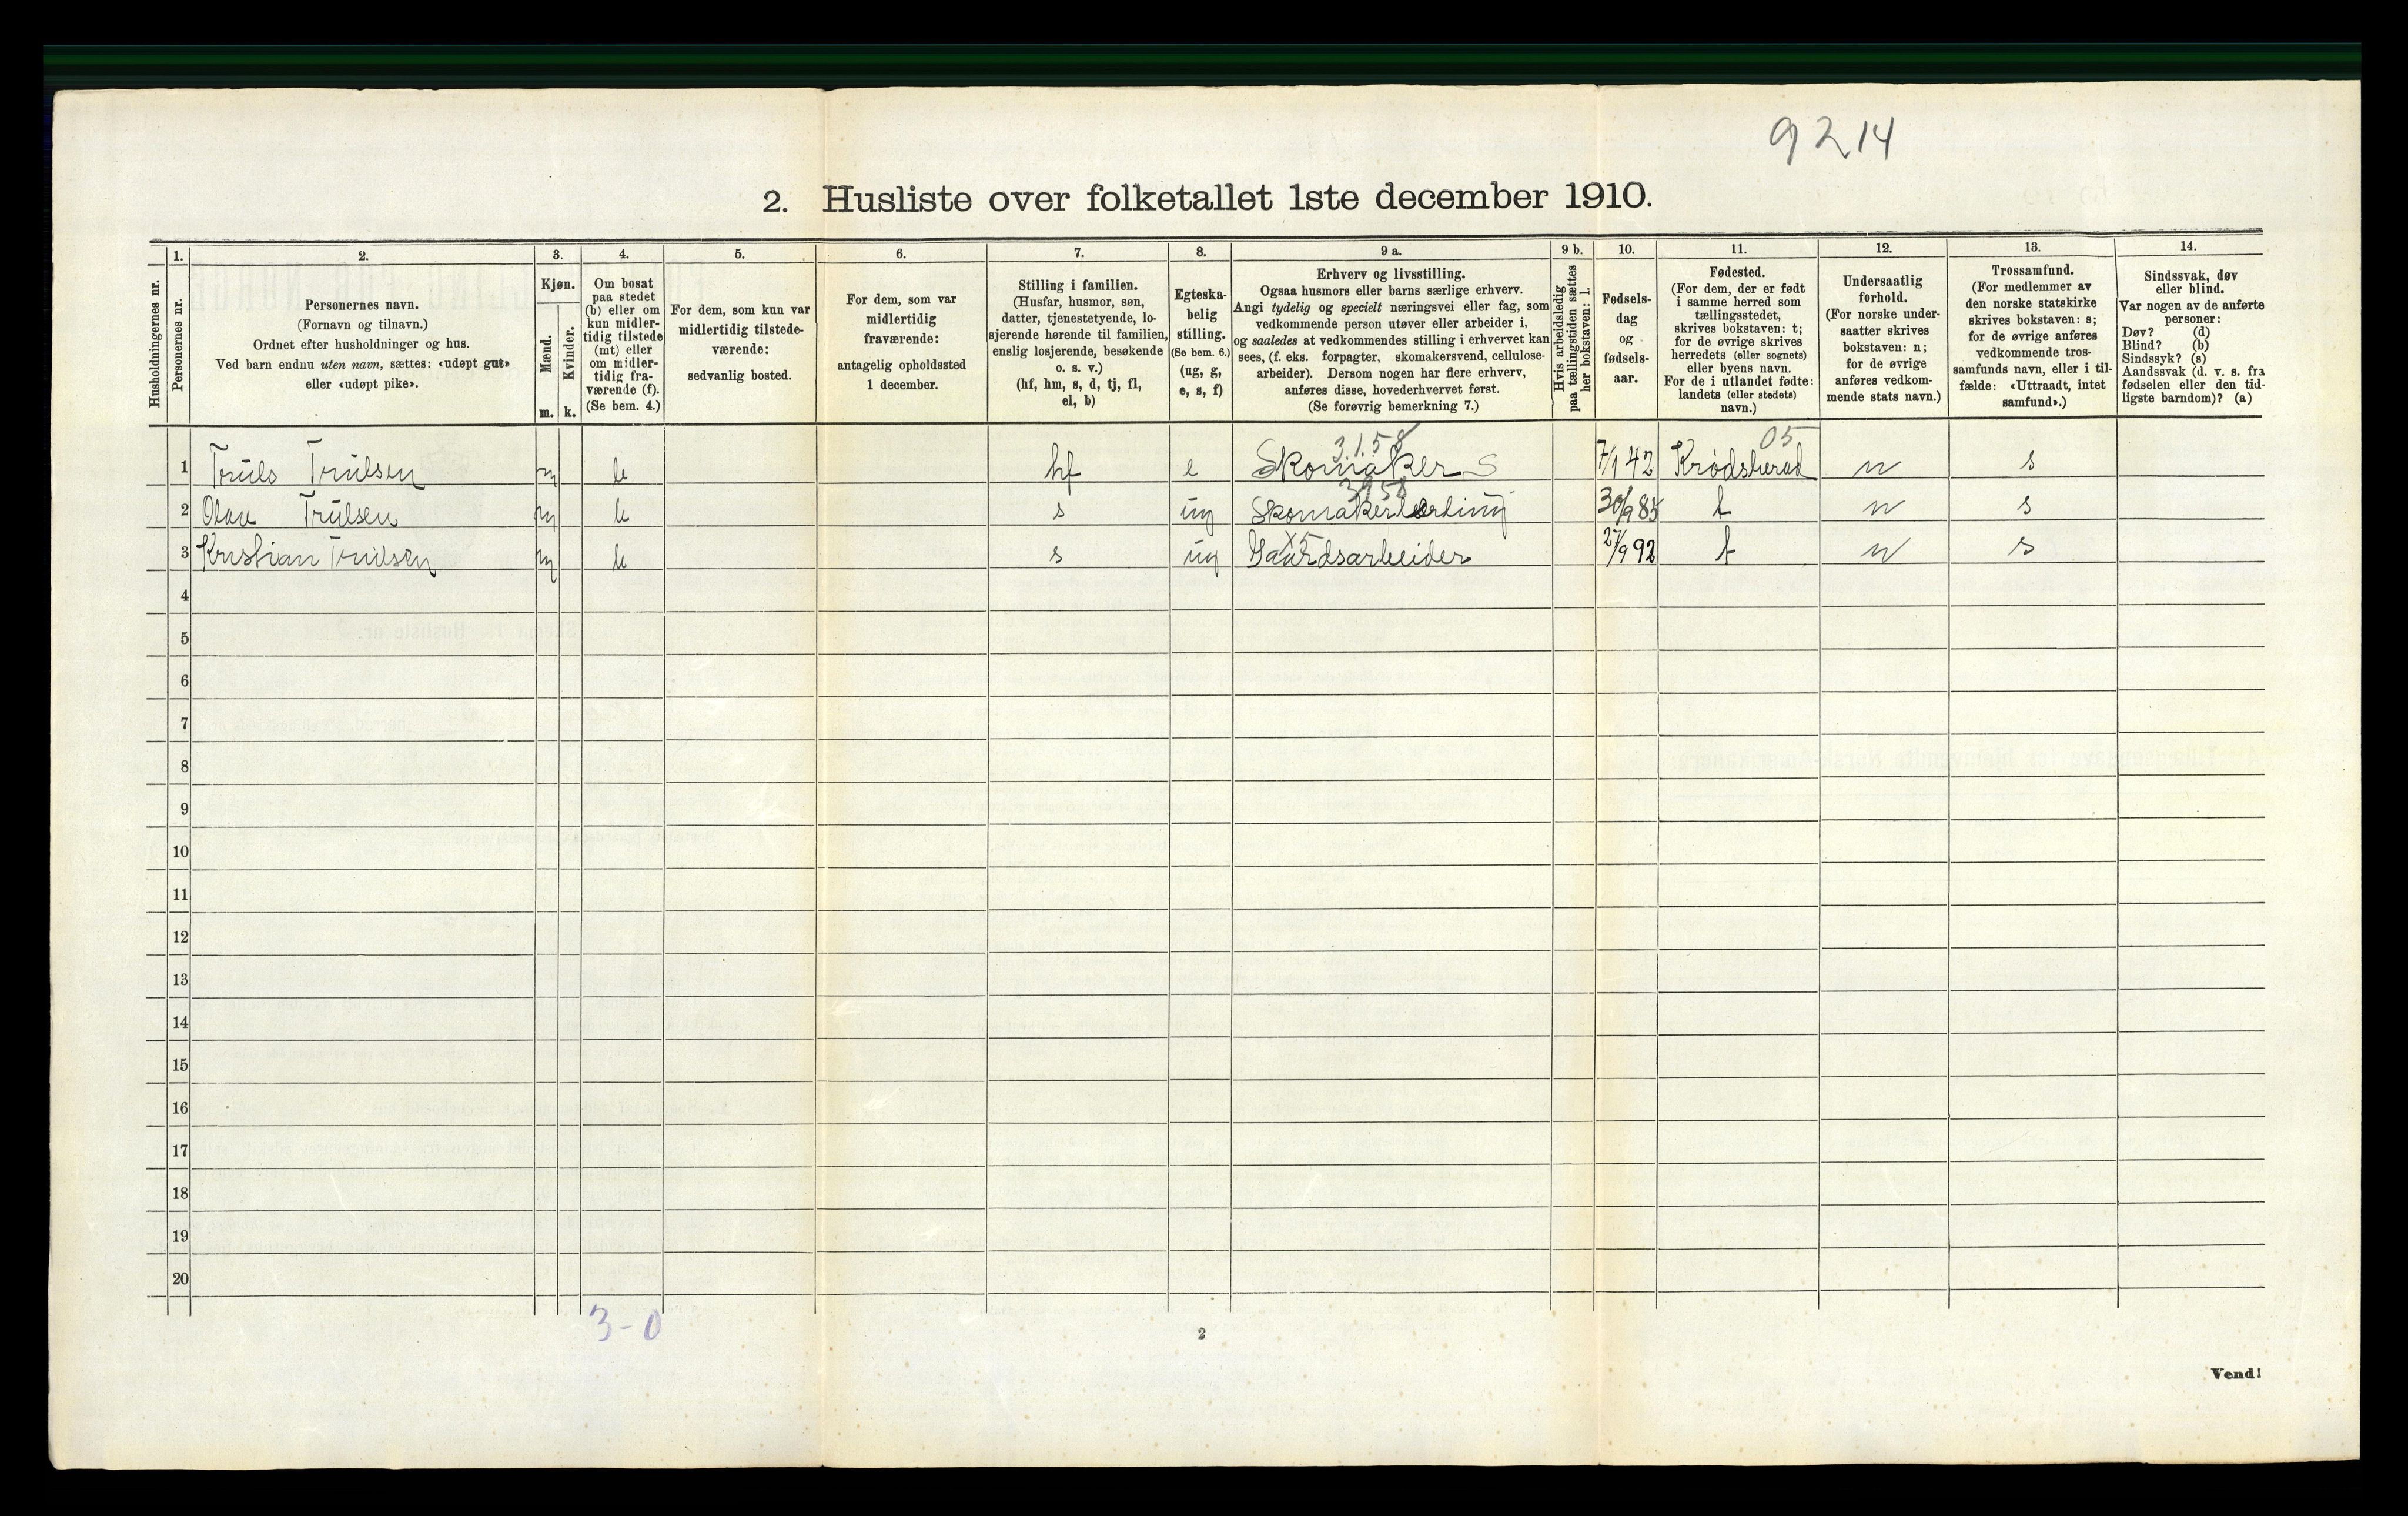 9214
2. Husliste over folketallet 1ste december 1910.
Husholdningernes nr.
1.
Personernes nr.
2.
Personernes navn.
(Fornavn og tilnavn.)
Ordnet efter husholdninger og hus.
Ved barn endnu uten navn, sættes: «udøpt gut»
eller «udøpt pike».
3.
Kjøn.
Mænd.
Kvinder.
m. k.
4.
Om bosat
paa stedet
(b) eller om
kun midler-
tidig tilstede
(mt) eller
om midler-
tidig fra-
værende (f).
(Se bem. 4.)
5.
For dem, som kun var
midlertidig tilstede-
værende:
sedvanlig bosted.
6.
For dem, som var
midlertidig
fraværende:
antagelig opholdssted
1 december.
7.
Stilling i familien.
(Husfar, husmor, søn,
datter, tjenestetyende, lo-
sjerende hørende til familien,
enslig losjerende, besøkende
o. s. v.)
(hf, hm, s, d, tj, fl,
el, b)
8.
Egteska-
belig
stilling.
(Se bem. 6.)
(ug, g,
e, s, f)
9 a.
Erhverv og livsstilling.
Ogsaa husmors eller barns særlige erhverv.
Angi tydelig og specielt næringsvei eller fag, som
vedkommende person utøver eller arbeider i,
og saaledes at vedkommendes stilling i erhvervet kan
sees, (f. eks. forpagter, skomakersvend, cellulose-
arbeider). Dersom nogen har flere erhverv,
anføres disse, hovederhvervet først.
(Se forøvrig bemerkning 7.)
9 b.
Hvis arbeidsledig
paa tællingstiden sættes
her bokstaven: l.
10.
Fødsels-
dag
og
fødsels-
aar.
11.
Fødested.
(For dem, der er født
i samme herred som
tællingsstedet,
skrives bokstaven: t;
for de øvrige skrives
herredets (eller sognets)
eller byens navn.
For de i utlandet fødte:
landets (eller stedets)
navn.)
12.
Undersaatlig
forhold.
(For norske under-
saatter skrives
bokstaven: n;
for de øvrige
anføres vedkom-
mende stats navn.)
13.
Trossamfund.
(For medlemmer av
den norske statskirke
skrives bokstaven: s;
for de øvrige anføres
vedkommende tros-
samfunds navn, eller i til-
fælde: «Uttraadt, intet
samfund».)
14.
Sindssvak, døv
eller blind.
Var nogen av de anførte
personer:
Døv? (d)
Blind? (b)
Sindssyk? (s)
Aandssvak (d. v. s. fra
fødselen eller den tid-
ligste barndom)? (a)
3.1.58 05
1 Truls Trulsen m b hf e Skomaker S 7/1 42 Krødsherad n s
3958
2 Olav Trulsen m b s ug Skomakerlærling 30/9 85 t n s
X5
3 Kristian Trulsen m b s ug Gaardsarbeider 27/9 92 t n s
4
5
6
7
8
9
10
11
12
13
14
15
16
17
18
19
20
3-0
2
Vend!